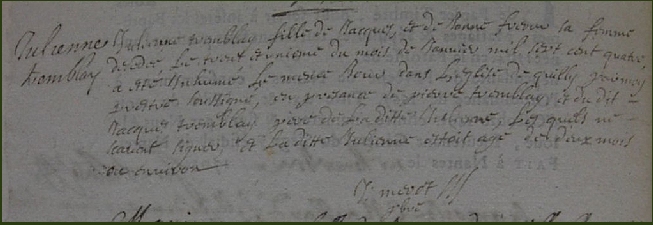 Julienne Julienne tremblay fille de Jacques, et de Bonne sa femme
tremblay decedee Le trent et unieme du mois de Janvier mil sept cent quatre
a esté inhumée Le mesme Jour dans L'eglise de quilly par moy
prestre soussigné, en presance de pierre tremblay et du dit
Jacques tremblay pere de La ditte Julienne Lesquels ne
scavent signer et La ditte Julienne estoit agé de deux mois
ou environ